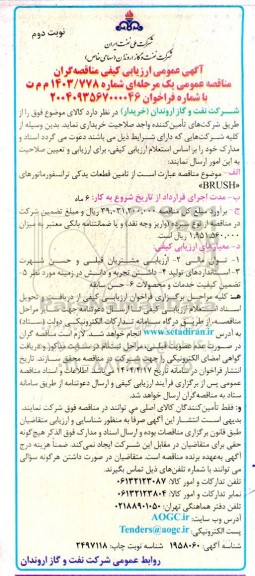 نوبت دوم
شرکت ملی نفت ایران
شرکت نفت و گاز اروندان (سهامی خاص)
آگهی عمومی ارزیابی کیفی مناقصه‌گران
مناقصه عمومی یک مرحله‌ای شماره ۱۴۰۳/۷۷۸ م م ت
با شماره فراخوان ۲۰۰۴۰۹۳۵۶۷۰۰۰۰۴۶
شرکت نفت و گاز اروندان (خریدار) در نظر دارد کالای موضوع فوق را از
طریق شرکت‌های تأمین‌کننده واجد صلاحیت خریداری نماید. بدین وسیله از
کلیه شرکت‌هایی که دارای شرایط ذیل می باشند دعوت می گردد اسناد و
مدارک خود را براساس استعلام ارزیابی کیفی، برای ارزیابی و تعیین صلاحیت
به این امور ارسال نمایند:
الف - موضوع مناقصه عبارت است از تامین قطعات یدکی ترانسفورماتورهای
«BRUSH»
ب- مدت اجرای قرارداد از تاریخ شروع به کار: ۶ ماه
ج- برآورد مبلغ کل مناقصه ریال و مبلغ تضمین شرکت
در مناقصه از نوع سپرده (واریز وجه نقد) و یا ضمانتنامه بانکی معتبر به میزان
۱,۹۵۱,۵۶۰,۰۰۰ ریال است.
د- معیارهای ارزیابی کیفی:
۱- توان مالی ۲- ارزیابی مشتریان قبلی و حسن شهرت
۳- استانداردهای تولید ۴- داشتن تجربه و دانش در زمینه مورد نظر ۵-
تضمین کیفیت خدمات و محصولات ۶- حسن سابقه
هـ: کلیه مراحل برگزاری فراخوان ارزیابی کیفی از دریافت و تحویل
اسناد استعلام ارزیابی کیفی تا ارسال دعوتنامه جهت سایر مراحل
مناقصه، از طریق درگاه سامانه تدارکات الکترونیکی دولت (ستاد)
به آدرس www.setadiran.ir انجام خواهد شد. لازم است مناقصه گران
در صورت عدم عضویت قبلی، مراحل ثبت‌نام در سایت مذکور و دریافت
گواهی امضای الکترونیکی را جهت شرکت در مناقصه محقق سازند. تاریخ
انتشار فراخوان در سامانه تاریخ ۱۴۰۴/۲/۱۷ می باشد. اطلاعات و اسناد مناقصه
عمومی پس از برگزاری فرآیند ارزیابی کیفی و ارسال دعوتنامه از طریق سامانه
ستاد به مناقصه‌گران ارسال خواهد شد.
و: فقط تأمین‌کنندگان کالای اصلی می توانند در مناقصه فوق شرکت نمایند.
بدیهی است انتشار این آگهی صرفا به منظور شناسایی و ارزیابی متقاضیان
طبق قانون برگزاری مناقصات بوده و ارسال اسناد و مدارک فوق الذکر هیچ‌گونه
حقی برای متقاضیان در مقابل این شرکت ایجاد نمی‌کند. ضمناً هزینه درج
آگهی به‌عهده برنده مناقصه است. متقاضیان در صورت داشتن هرگونه سؤالی
می توانند با شماره تلفن‌های ذیل تماس بگیرند.
تلفن تدارکات و امور کالا: ۰۶۱۳۲۱۲۳۰۸۷
نمابر تدارکات و امور کالا: ۰۶۱۳۲۱۲۳۸۰۴
تلفن دفتر هماهنگی تهران: ۰۲۱۸۸۹۰۱۰۵۰
آدرس وب سایت: AOGC.ir
پست الکترونیکی: Tenders@aogc.ir
شناسه آگهی: ۱۹۵۸۰۶۰ شناسه نوبت چاپ: ۲۴۹۷۱۱۸
روابط عمومی شرکت نفت و گاز اروندان